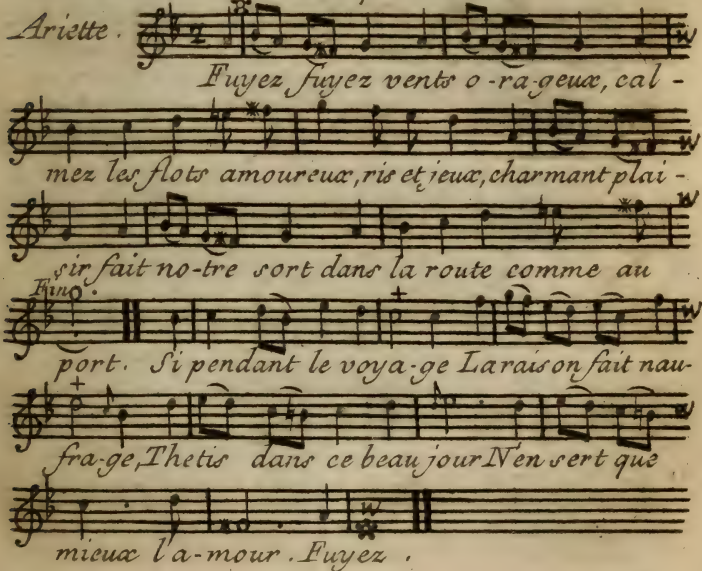 Ariette.
Fuyez fuyez vents o-ra-geux, cal-
mez les flots amoureux, ris et jeux, charmant plai-
sir fait no-tre sort dans la route comme au
Fin.
port. Si pendant le voya-ge La raison fait nau-
fra-ge, Thetis dans ce beau jour N'en sert que
mieux l'a-mour. Fuyez.